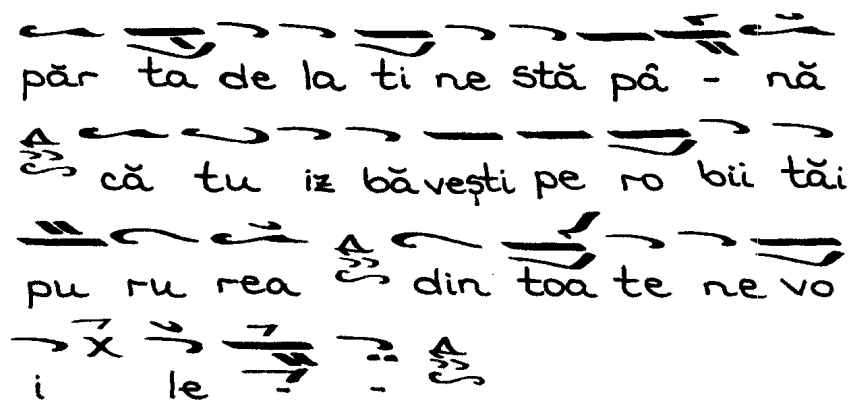 păr ta de la ti ne stă pâ - nă
că tu iz bă vești pe ro bii tăi
pu ru rea din toa te ne vo
i le - -